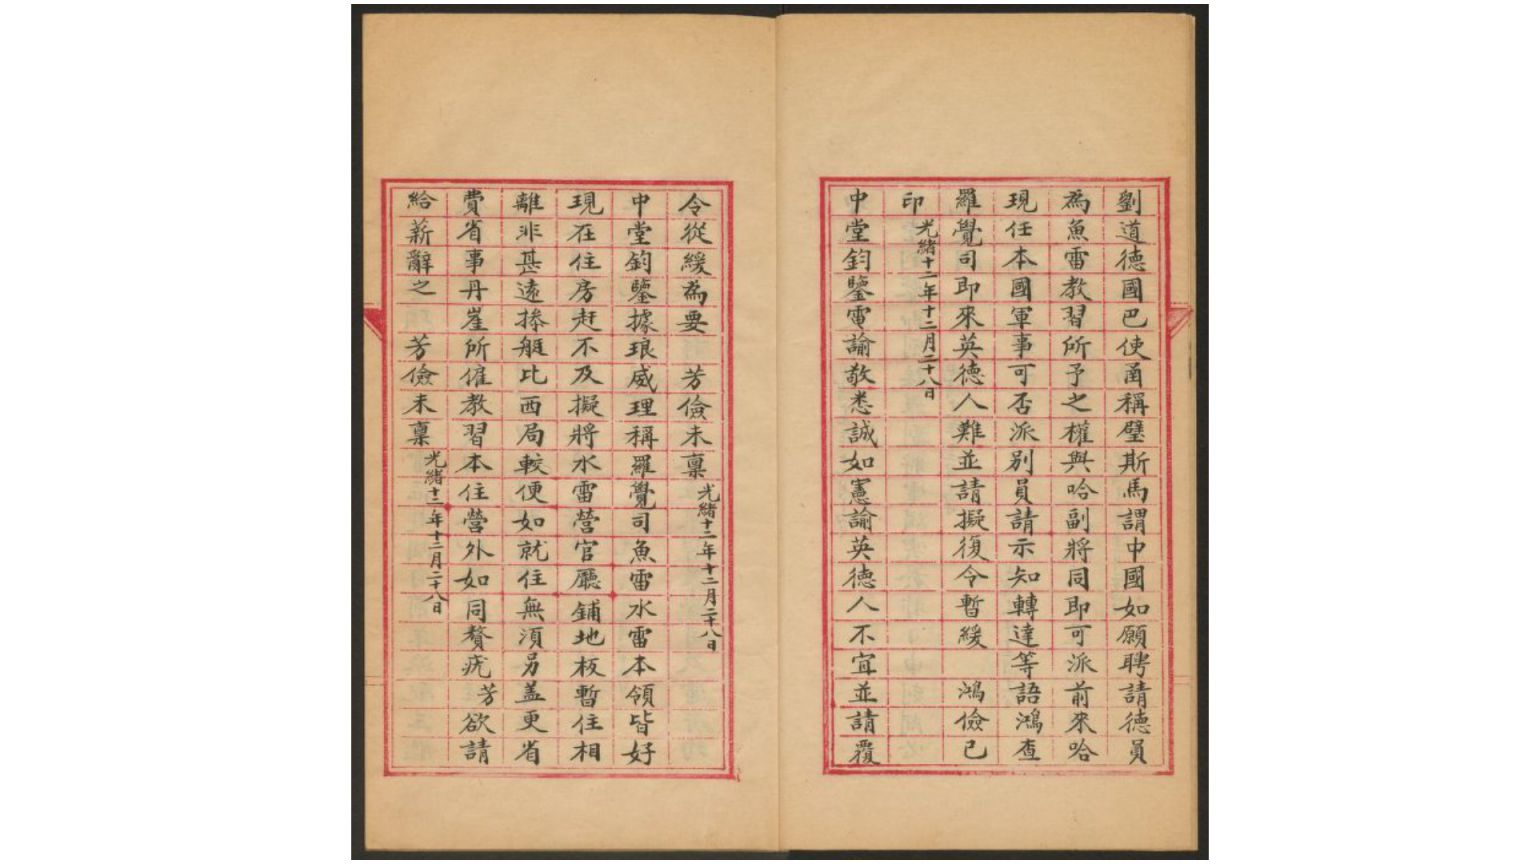 劉道德國巴使函稱璧斯馬謂中國如願聘請德員
為魚雷教習所予之權與哈副將同即可派前來哈
現任本國軍事可否派別員請示知轉達等語鴻查
羅覺司即來英德人難並請擬復令暫緩 鴻儉已
印 光緒十二年十二月二十八日
中堂鈞鑒電諭敬悉誠如憲諭英德人不宜並請覆
令從緩為要 芳儉未稟 光緒十二年十二月二十八日
中堂鈞鑒據琅威理稱羅覺司魚雷水雷本領皆好
現在住房赶不及擬將水雷營官廳鋪地板暫住相
離非甚遠捧艇比西局較便如就住無須另蓋更省
費省事丹崖所僱教習本住營外如同贅疣芳欲請
給薪辭之 芳儉未稟 光緒十二年十二月二十八日